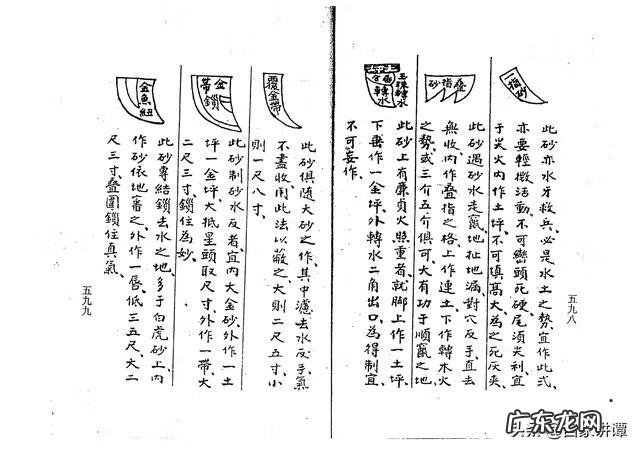 一指砂
此砂亦水牙救兵,必是水土之勢宜作此式,
亦要輕微活動,不可巒頭死硬,尾須尖利,宜
于尖火內作土坪,不可填高大,為之死灰夾
疊指砂
此砂遇砂水走竄,地扯地漏,對穴反手直去
無收,內作疊指之格,上作連土,下作轉木火
之勢,或三介五介俱可,大有功于順竄之地
玉珠轉水
金魚轉水
此砂上有廉貞火照重者,就脚上作一土坪,
下番作一金坪,外轉水二角出口,為得制宜,
不可妄作。
五九八
覆金帶
此砂俱随大砂之作,其中濾去水反手氣
不盡收,用此法以蔽之,大則二尺五寸,小
則一尺八寸。
金帶鎖
此砂制砂水反者,宜內大金砂,外作一土
坪一金坪,大抵星頭取尺寸,外作一帶,大
二尺三寸,鎖住為妙。
金魚紐
此砂專結鎖去水之地,多于白虎砂上,內
作砂依地審之,外作一唇,低三五尺,大二
尺三寸,疊圓鎖住真氣。
五九九
头条@百家讲谭
广东龙网